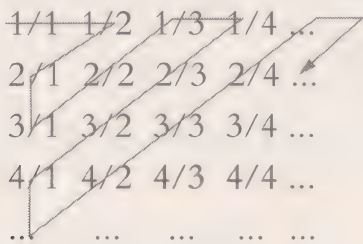 1/1 1/2 1/3 1/4 ...
2/1 2/2 2/3 2/4 ...
3/1 3/2 3/3 3/4 ...
4/1 4/2 4/3 4/4 ...
... ... ... ... ...